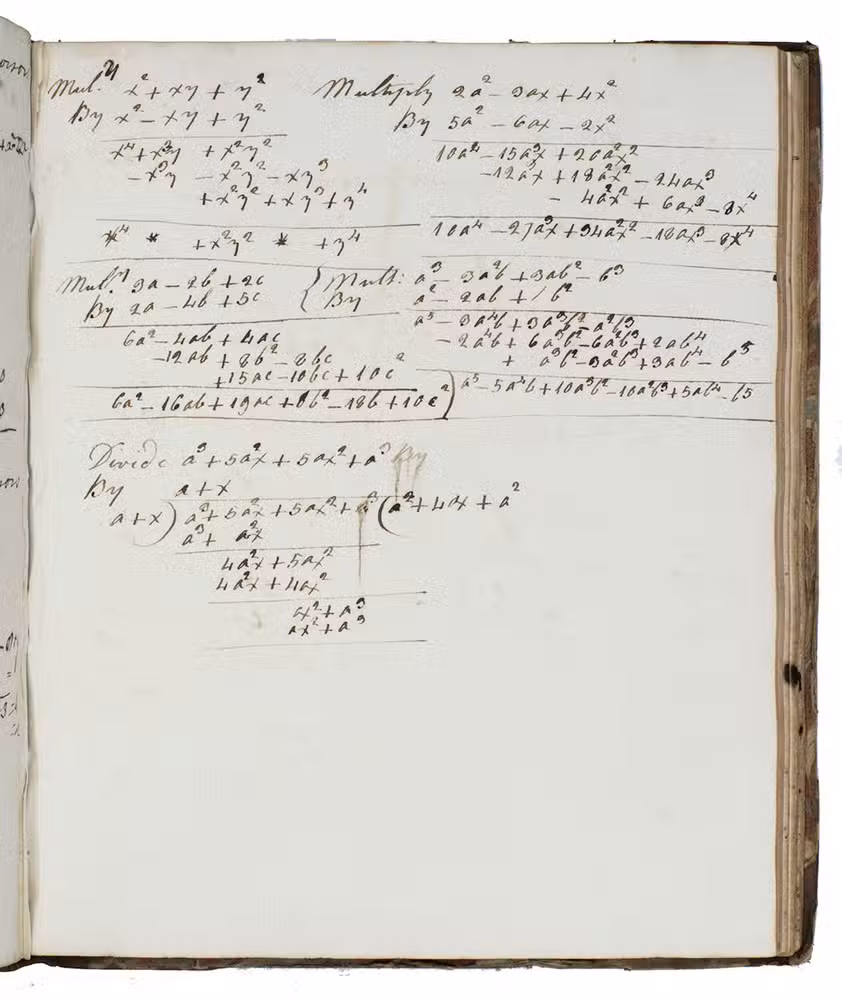 Mul.y x² + xy + y²
By x² - xy + y²
x⁴ + x³y + x²y²
- x³y - x²y² - xy³
+ x²y² + xy³ + y⁴
x⁴ * + x²y² * + y⁴
Multiply 2a² - 3ax + 4x²
By 5a² - 6ax - 2x²
10a⁴ - 15a³x + 20a²x²
- 12a³x + 18a²x² - 24ax³
- 4a²x² + 6ax³ - 8x⁴
10a⁴ - 27a³x + 34a²x² - 18ax³ - 8x⁴
Mul.y 3a - 2b + 2c
By 2a - 4b + 5c
6a² - 4ab + 4ac
- 12ab + 8b² - 8bc
+ 15ac - 10bc + 10c²
6a² - 16ab + 19ac + 8b² - 18b + 10c²
Mult: a³ - 3a²b + 3ab² - b³
By a² - 2ab + b²
a⁵ - 3a⁴b + 3a³b² - a²b³
- 2a⁴b + 6a³b² - 6a²b³ + 2ab⁴
+ a³b² - 3a²b³ + 3ab⁴ - b⁵
a⁵ - 5a⁴b + 10a³b² - 10a²b³ + 5ab⁴ - b5
Divide a³ + 5a²x + 5ax² + a³ By
By a + x
a + x ) a³ + 5a²x + 5ax² + a³ ( a² + 4ax + a²
a³ + a²x
4a²x + 5ax²
4a²x + 4ax²
ax² + a³
ax² + a³